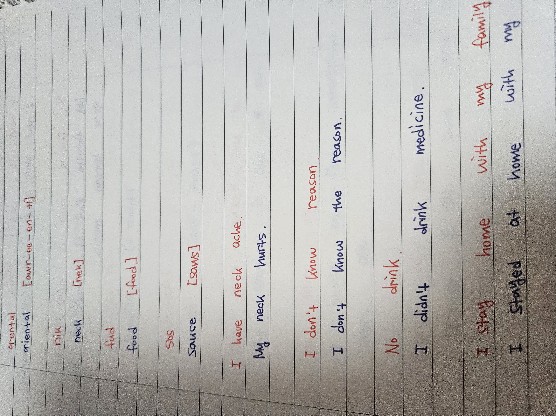 oriental
nik
neck [nek]
fud
food [food]
sos
sauce [saws]
I have neck ache.
My neck hurts.
I don't know reason
I don't know the reason.
No drink
I didn't drink medicine.
I stay home with my family
I stayed at home with my